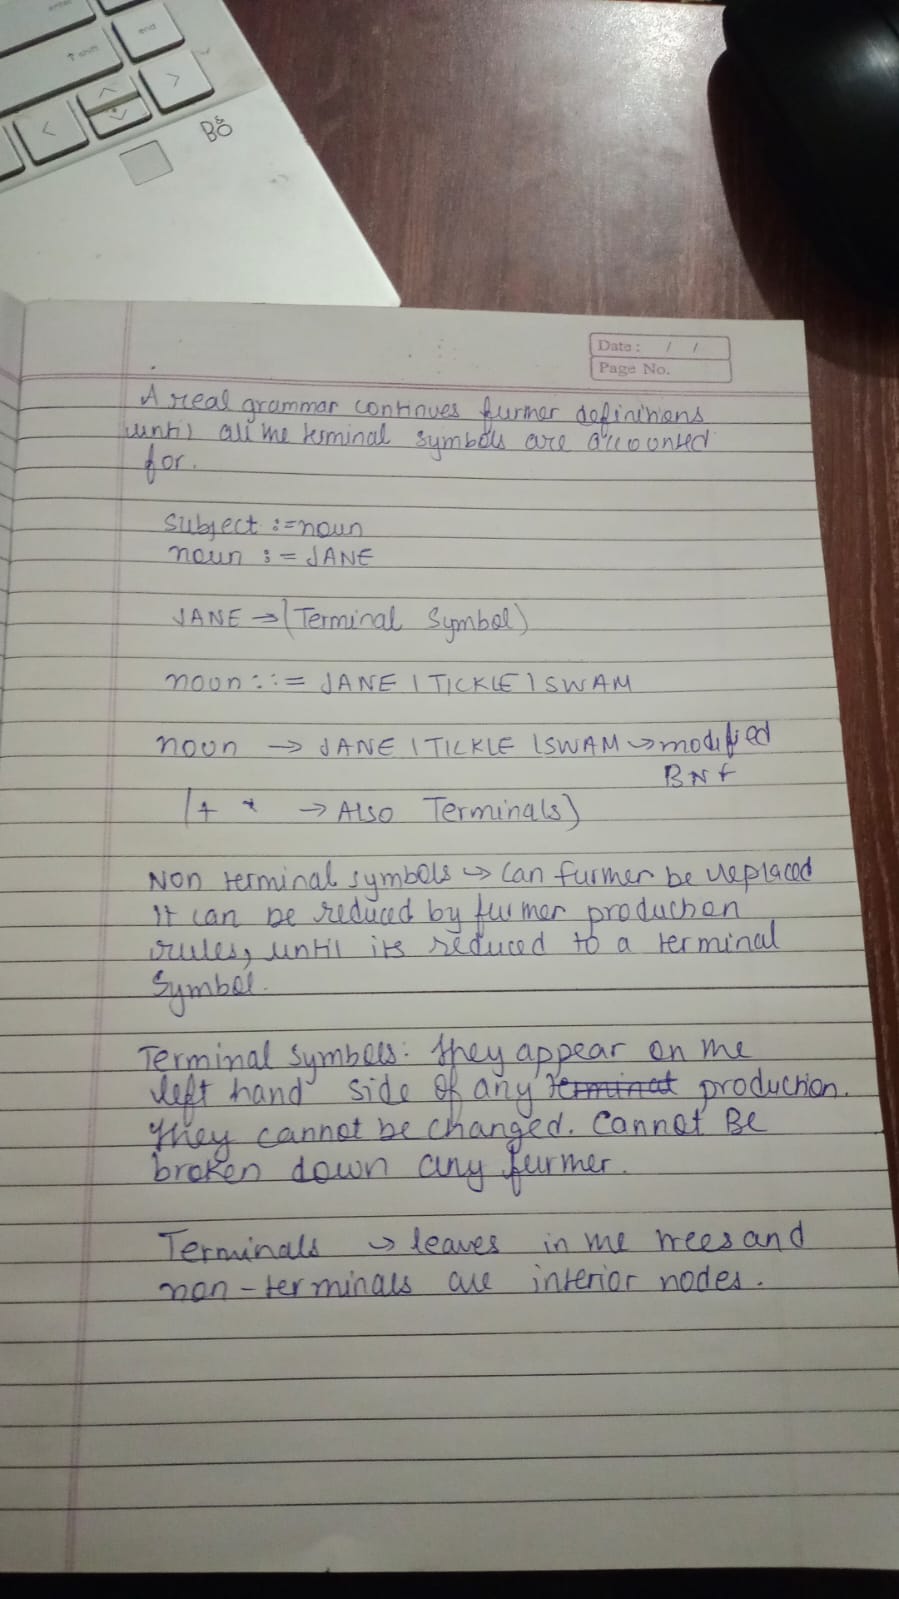 enter
↑ shift
end
B&O
Date: / /
Page No.
A real grammar continues further definitions
until all the terminal symbols are accounted
for.
Subject :=noun
noun := JANE
JANE → (Terminal Symbol)
noun ::= JANE | TICKLE | SWAM
noun → JANE | TICKLE | SWAM → modified
BNf
(+ * → Also Terminals)
Non terminal symbols → Can further be replaced
It can be reduced by further production
rules, until its reduced to a terminal
Symbol.
Terminal Symbols: They appear on the
left hand side of any terminat production.
They cannot be changed. Cannot Be
broken down any further.
Terminals → leaves in the trees and
non-terminals are interior nodes.